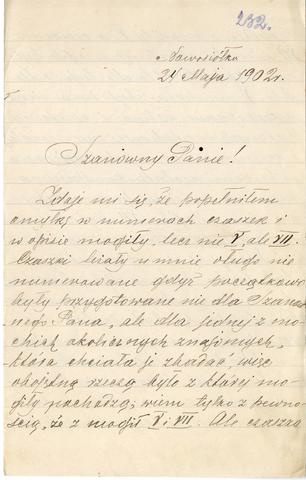 232.
Nowosiółka
24 Maja 1902 r.
Szanowny Panie!
Zdaje mi się, że popełniłem
omyłkę w numerach czaszek i
w opisie mogiły, lecz nie V, ale VII.
Czaszki leżały u mnie długo nie
numerowane gdyż początkowo
były przygotowane nie dla Szanow
nego Pana, ale dla jednej z mo-
ich okolicznych znajomych,
która chciała je zbadać, więc
obojętną rzeczą było z której mo-
giły pochodzą; wiem tylko z pewno-
ścią, że z mogił V i VII. Ale czaszka